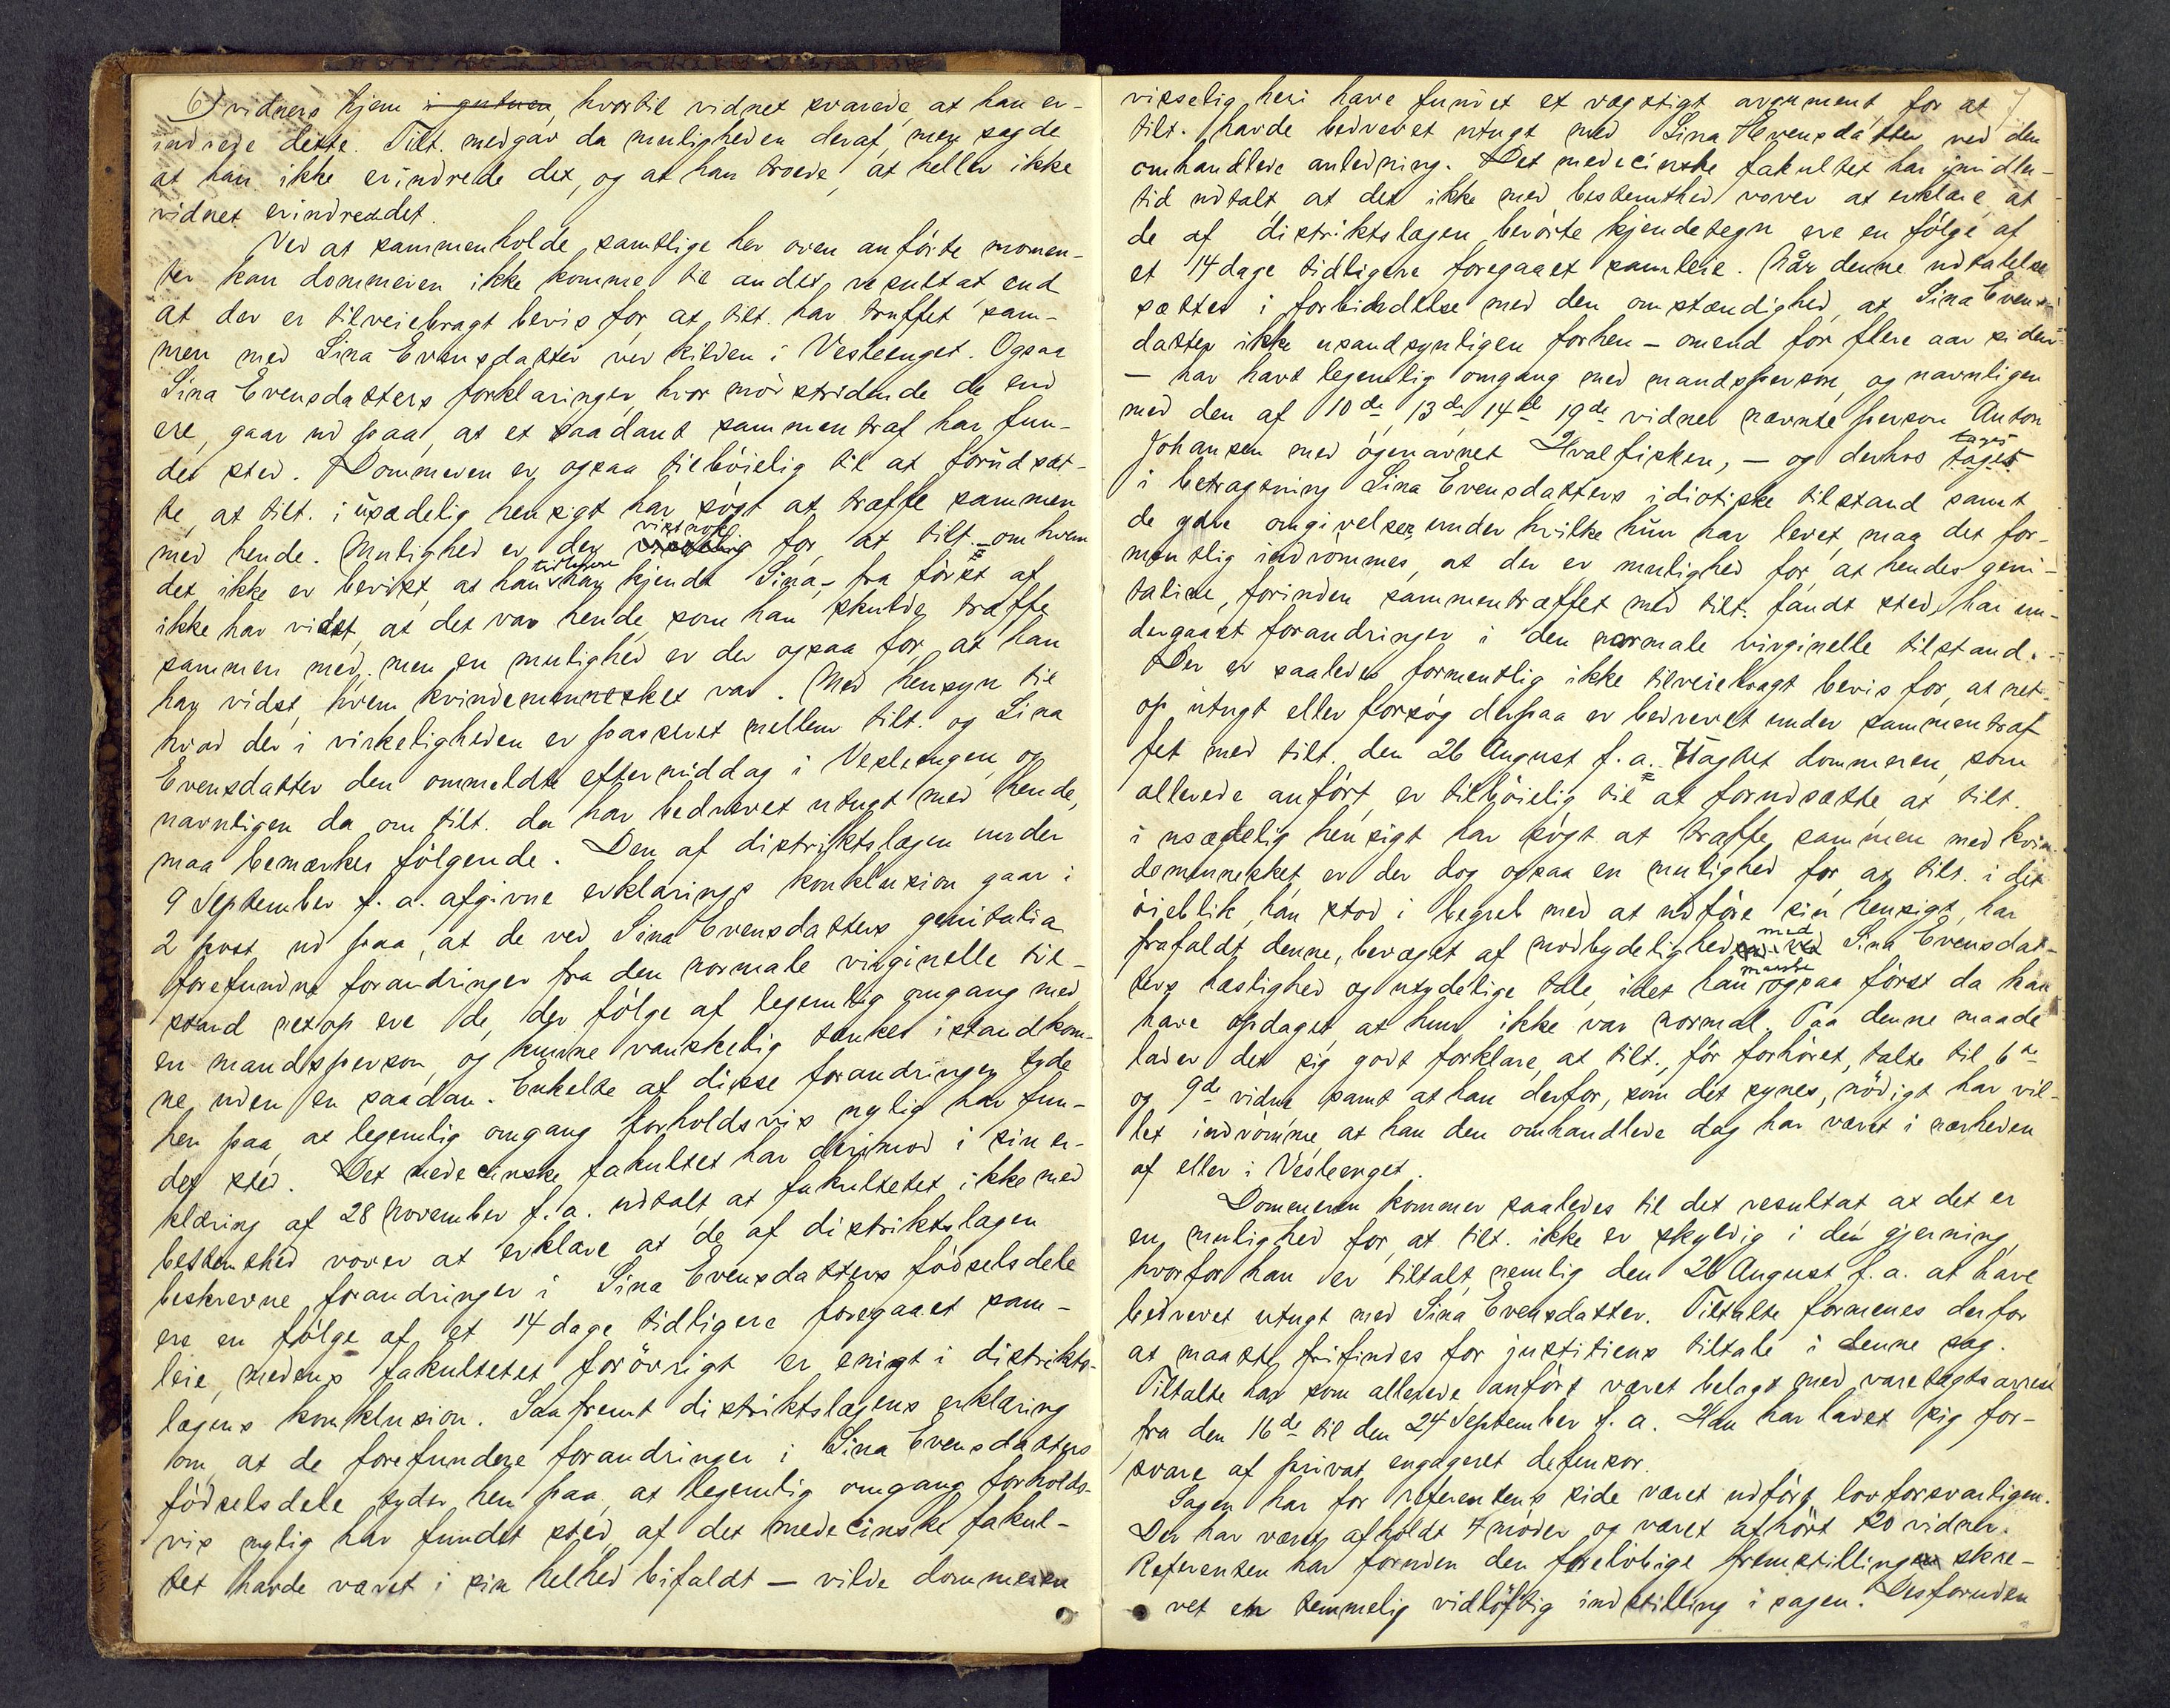 6) vidners hjem i gutuen, hvortil vidnet svarede, at han er-
indrede dette. Tilt. medgav da muligheden deraf, men sagde
at han ikke erindrede det, og at han troede, at heller ikke
vidnet erindredet.
Ved at sammenholde samtlige her oven anförte momen-
ter kan dommeren ikke komme til andet resultat end
at der er tilveiebragt bevis for, at tilt. har truffet sam-
men med Sina Evensdatter ved kilden i Vesleenget. Ogsaa
Sina Evensdatters forklaringer, hvor modstridende de end
ere, gaar ud paa, at et saadant sammentræf har fun-
det sted. Dommeren er ogsaa tilböielig til at forudsæt-
te, at tilt. i usædelig hensigt har sögt at træffe sammen
med hende. Mulighed er der vistnok for, at tilt. – om hvem
det ikke er bevist, at han tidligere har kjendt Sina, – fra först af
ikke har vidst, at det var hende, som han skulde træffe
sammen med, men en mulighed er der ogsaa for, at han
har vidst, hvem kvindemennesket var. Med hensyn til
hvad der i virkeligheden er passeret mellem tilt. og Sina
Evensdatter den ommeldte eftermiddag i Vesleengen, og
navnligen da om tilt. da har bedrevet utugt med hende,
maa bemærkes fölgende. Den af distriktslægen under
9 September f. a. afgivne erklærings konklusion gaar i
2 post ud paa, at de ved Sina Evensdatters genitalia
forefundne forandringer fra den normale virginelle til-
stand netop ere de, der fölge af legemlig omgang med
en mandsperson, og kunne vanskelig tænkes istandkom-
ne uden en saadan. Enkelte af disse forandringer tyde
hen paa, at legemlig omgang forholdsvis nylig har fun-
det sted. Det medecinske fakultet har derimod i sin er-
klæring af 28 November f. a. udtalt at fakultetet ikke med
bestemthed vover at erklære at de af distriktslægen
beskrevne forandringer i Sina Evensdatters födselsdele
ere en fölge af et 14 dage tidligere foregaaet sam-
leie, medens fakultetet forövrigt er enigt i distrikts-
lægens konklusion. Saafremt distriktslægens erklæring
om, at de forefundne forandringer i Sina Evensdatters
födselsdele tyder hen paa, at legemlig omgang forholds-
vis nylig har fundet sted, af det medecinske fakul-
tet havde været i sin helhed bifaldt – vilde dommeren
7
visselig heri have fundet et vægtigt argument for at
tilt. havde bedrevet utugt med Sina Evensdatter ved den
omhandlede anledning. Det medecinske fakultet har imidler-
tid udtalt, at det ikke med bestemthed vover at erklære, at
de af distriktslægen berörte kjendetegn ere en fölge af
et 14 dage tidligere foregaaet samleie. Når denne udtalelse
sættes i forbindelse med den omstændighed, at Sina Evens-
datter ikke usandsynligen forhen – omend for flere aar siden
– har havt legemlig omgang med mandsperson, og navnligen
med den af 10de, 13de, 14de 19de vidner nævnte person Anton
Johansen med ögenavnet Hvalfisken, – og derhos tages
i betragtning Sina Evensdatters idiotiske tilstand samt
de ydre omgivelser, under hvilke hun har levet, maa det for-
mentlig indrömmes, at der er mulighed for, at hendes geni-
taliae, forinden sammentræffet med tilt. fandt sted, har un-
dergaaet forandringer i den normale virginelle tilstand.
Der er saaledes formentlig ikke tilveiebragt bevis for, at net-
op utugt eller forsög derpaa er bedrevet under sammentræf-
fet med tilt. den 26 August f. a. Uagtet dommeren, som
allerede anfört, er tilböielig til at forudsætte at tilt.
i usædelig hensigt har sögt at træffe sammen med kvin-
demennesket, er der dog ogsaa en mulighed for at tilt. i det
öieblik, han stod i begreb med at udföre sin hensigt, har
frafaldt denne, bevæget af modbydelighed med Sina Evensdat-
ters hæslighed og utydelige tale, idet han maaske ogsaa först da kan
have opdaget, at hun ikke var normal. Paa denne maade
lader det sig godt forklare, at tilt., för forhöret, talte til 6te
og 9de vidne samt at han derfor, som det synes, nödigt har vil-
let indrömme, at han den omhandlede dag har været i nærheden
af eller i Vesleenget.
Dommeren kommer saaledes til det resultat at det er
en mulighed for, at tilt. ikke er skyldig i den gjerning,
hvorfor han er tiltalt, nemlig den 26 August f. a. at have
bedrevet utugt med Sina Evensdatter. Tiltalte formenes derfor
at maatte frifindes for justitiens tiltale i denne sag.
Tiltalte har som allerede anfört været belagt med varetægtsarrest
fra den 16de til den 24 September f. a. Han har ladet sig for-
svare af privat engageret defensor.
Sagen har for referentens side været udfört lovforsvarligen.
Der har været afholdt 7 möder og været afhört 20 vidner.
Referenten har foruden den forelöbige fremstilling skre-
vet en temmelig vidlöftig indstilling i sagen. Desforuden